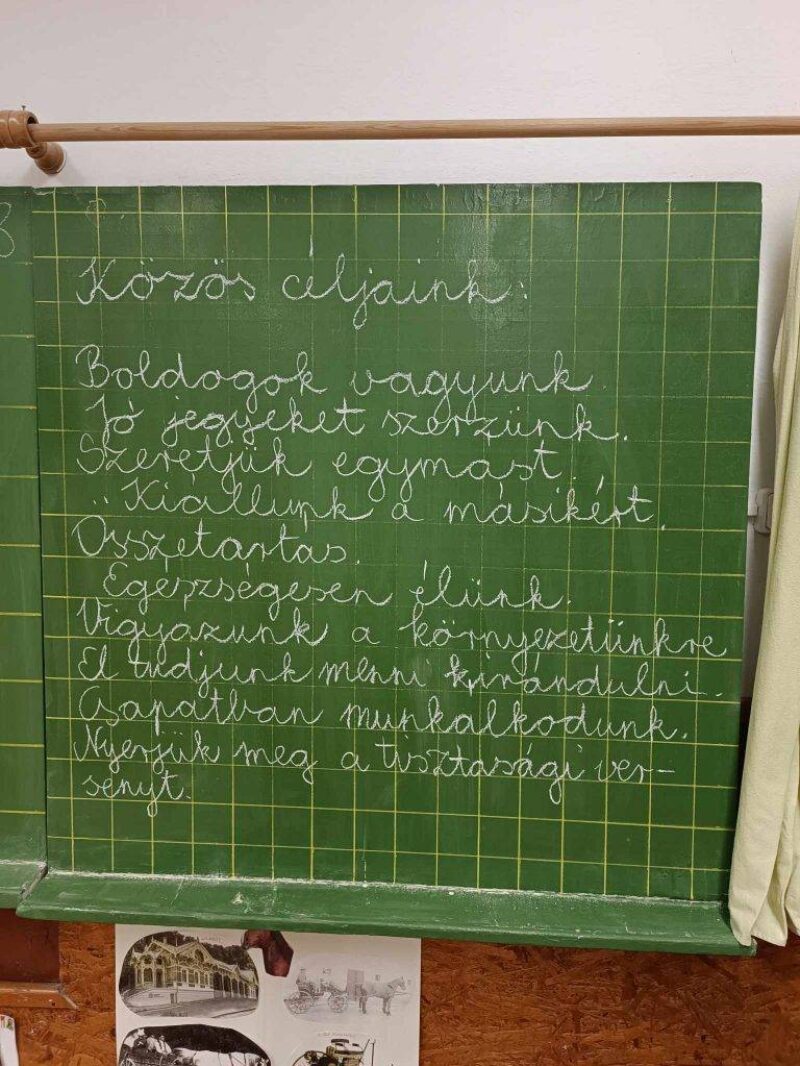 Közös céljaink:
Boldogok vagyunk.
Jó jegyeket szerzünk.
Szeretjük egymást.
Kiállunk a másikért.
Összetartás.
Egészségesen élünk.
Vigyázunk a környezetünkre
El tudjunk menni kirándulni.
Csapatban munkálkodunk.
Nyerjük meg a tisztasági ver-
senyt.